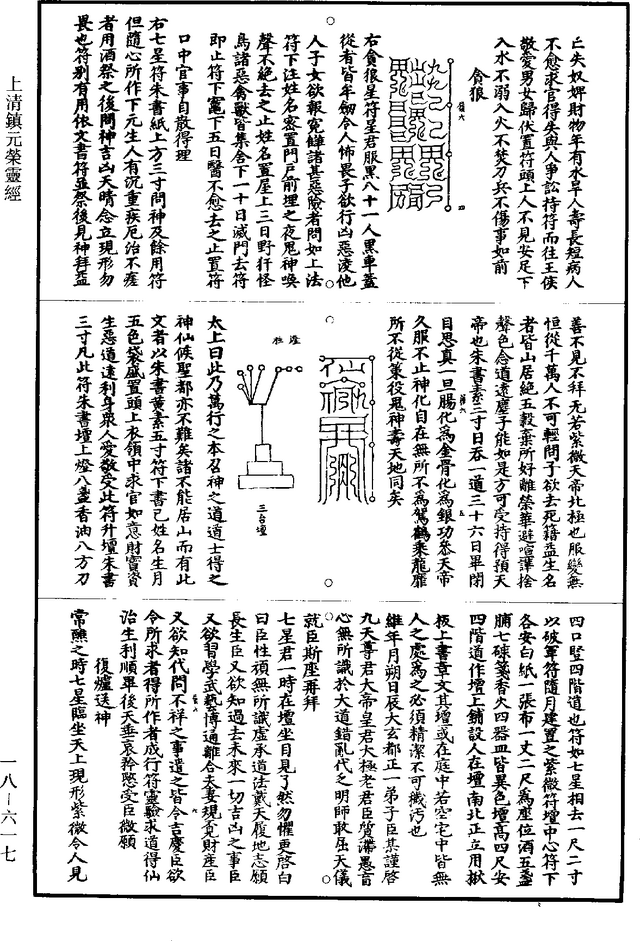 亡失奴婢財物年有水旱人壽長短病人
不愈求官得失與人爭訟持符而往王侯
敬愛男女歸伏置符頭上人不見安足下
入水不溺入火不焚刀兵不傷事如前
貪狼
右貪狼星符星君服黑八十一人黑車蓋
從者皆年劒令人怖畏子欲行凶惡淩他
人子女欲報冤讎諸甚惡險者問如上法
符下注姓名密置門戶前埋之夜鬼神喚
聲不絕去之止姓名置屋上三日野犴怪
鳥諸惡禽獸皆集舍下一十日滅門去符
即止符下竈下五日醫不愈去之止置符
口中官事自散得理
右七星符朱書紙上方三寸問神及餘用符
但隨心所作下元生人有沉重疾厄治不痊
者用酒祭之後問神吉凶天晴念立現形勿
畏也符別有用依文書符並然後見神拜益
善不見不拜无若紫微天帝北極也服變無
恒從千萬人不可輕問子欲去死籍益生名
者皆山居絕五穀棄所好離榮華避喧譁捨
聲色合道遠塵子能如是方可受持得預天
帝也朱書素三寸日吞一道三十六日畢閉
目思真一旦腸化為金骨化為銀功參天帝
久服不止神化自在無所不為駕鶴乘龍靡
所不從策役鬼神壽天地同矣
三台壇
太上曰此乃萬行之本召神之道道士得之
神仙候聖都亦不難矣諸不能居山而有此
文者以朱書黃素五寸符下書已姓名生月
五色袋盛置頭上衣領中求官如意財寶資
生惡道遠利身衆人愛敬受此符升壇朱書
三寸凡此符朱書壇上燈八盞香油八方刀
四口竪四階道也符如七星相去一尺二寸
以破軍符隨月建置之紫微符壇中心符下
各安白紙一張布一丈二尺為座位酒五盞
脯七㯿箋香火四器皿皆異色壇高四尺安
四階道作壇上鋪設人在壇南北正立用㭘
板上書章文其壇或在庭中若空宅中皆無
人之處為之必須精潔不可穢污也
維年月朔日辰大玄都正一弟子臣某謹啓
九天尊君大帝皇君大極老君臣質滯愚言
心無所識於大道錯亂代之明師敢屈天儀
就臣斯座再拜
七星君一時在壇坐目見了然勿懼更啓白
曰臣性頑無所識虛承道法戴天履地志願
長生臣又欲知過去未來一切吉凶之事臣
又欲習學武藝博通離合夫妻規覓財産臣
又欲知代間不祥之事遣之皆令吉慶臣欲
令所求者得所作者成行符靈驗求道得仙
治生利順畢後天垂哀矜愍受臣微願
復爐送神
常醮之時七星臨坐天上現形紫微令人見
上清鎮元榮靈經
一八-六一七